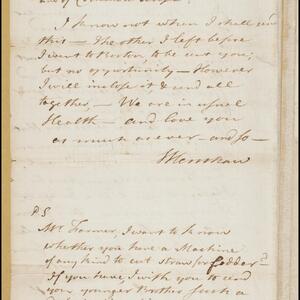 I know not when I shall send
this — The other I left before
I went to Boston, to be sent you;
but no opportunity — However
I will inclose it & send all
together, — We are in usual
Health — and love you
as much as ever — and so —
J Henshaw
PS
Mr Farmer, I want to know
whether you have a Machine
of any kind to cut straw for fodder?
If you have, I wish you to send
your younger Brother such a